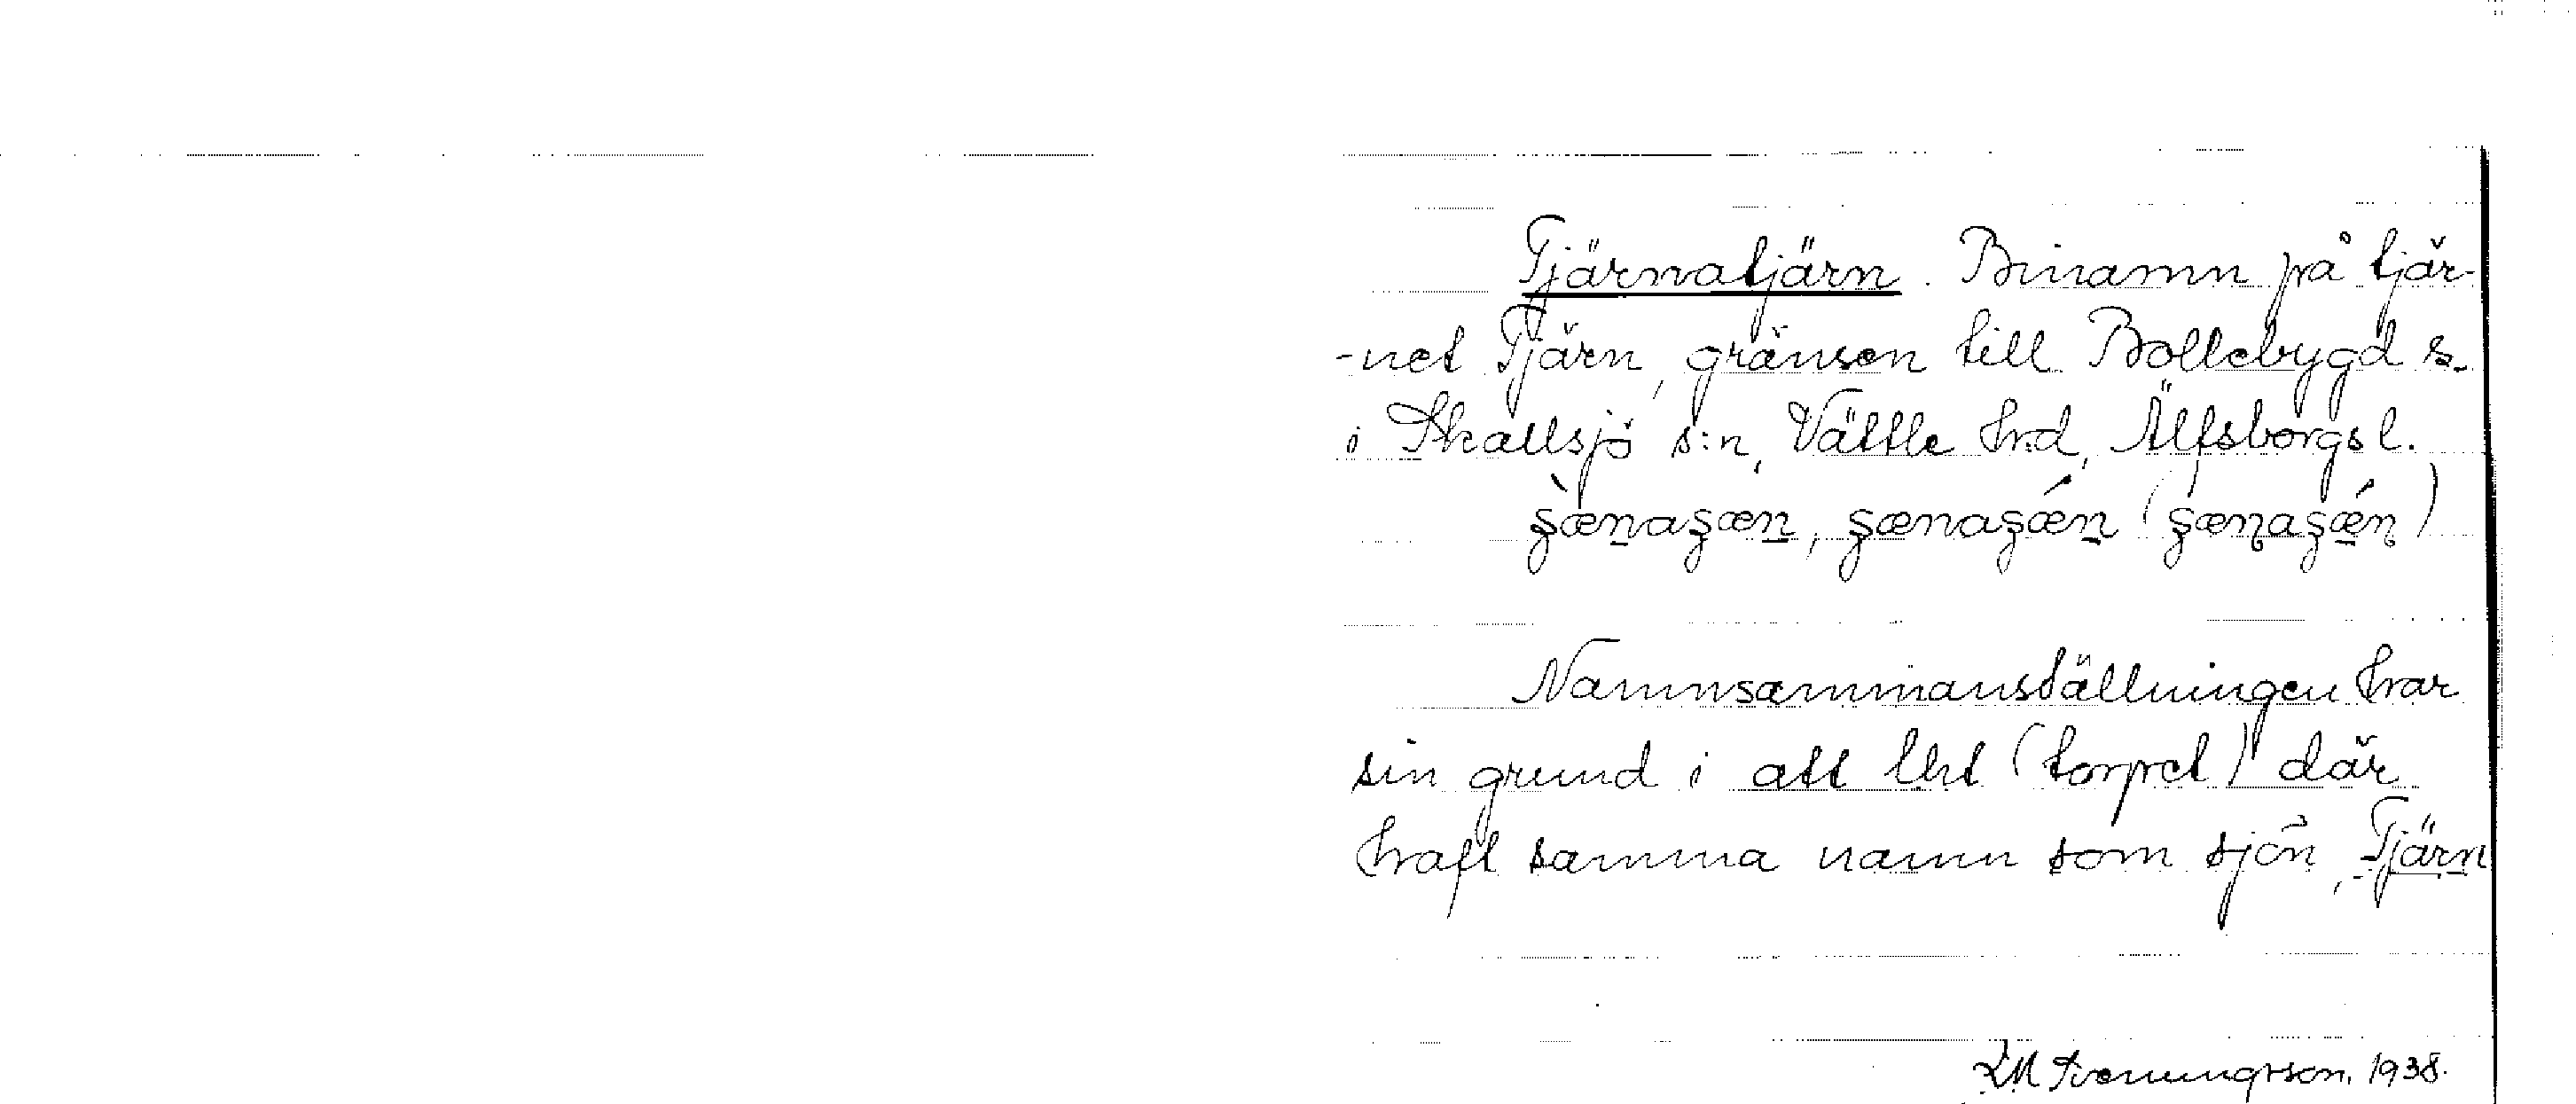 Tjärnatjärn. Binamn på tjär-
-net Tjärn, gränsen till Bollebygd s.
i Skallsjö s:n, Vättle hrd, Älfsborgs l.
Namnsammanställningen har
sin grund i att lht (torpet) där
haft samma namn som sjön, Tjärn
1938.